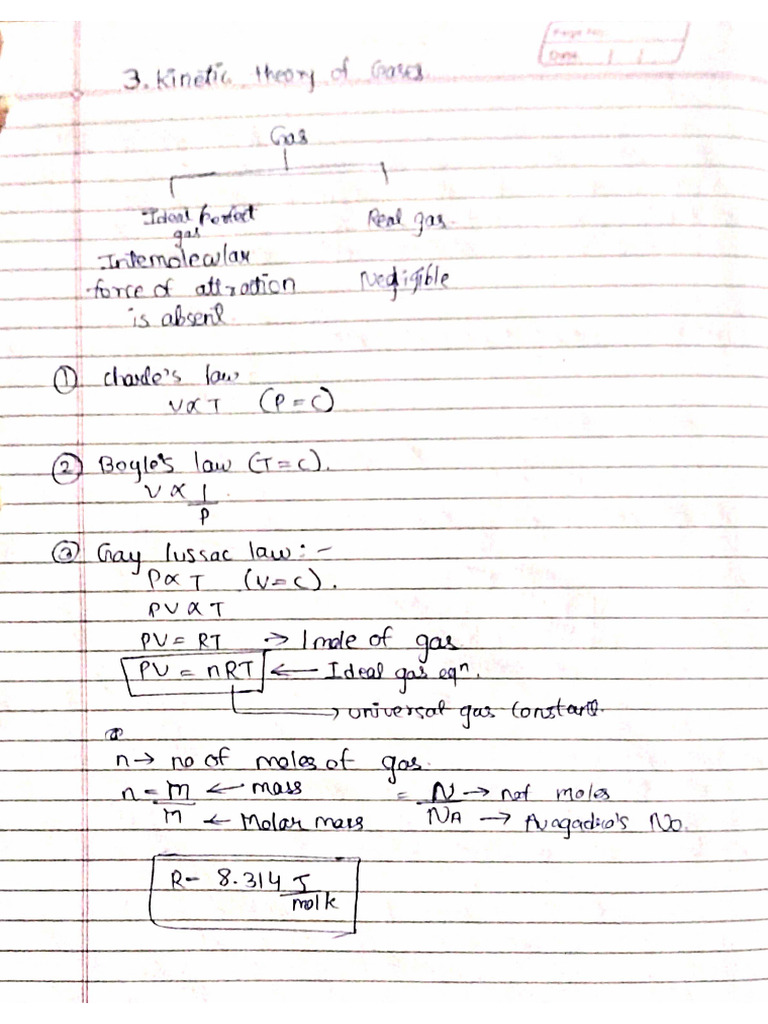 Page No.
Date
3. Kinetic theory of Gases
Gas
Ideal Perfect gas
Real gas.
Intemolecular
force of attraction
is absent
Negligible
① Charle's law
V∝T (P=C)
② Boyle's law (T=C).
V ∝ 1/P
③ Gay lussac law:-
P∝T (V=C).
PV∝T
PV=RT → 1 mole of gas
PV = nRT ← Ideal gas eqⁿ.
→ universal gas constant.
n→ no of moles of gas.
n = m ← mass = N → no of moles
m ← Molar mass NA → Avagadro's No.
R- 8.314 J
mol k